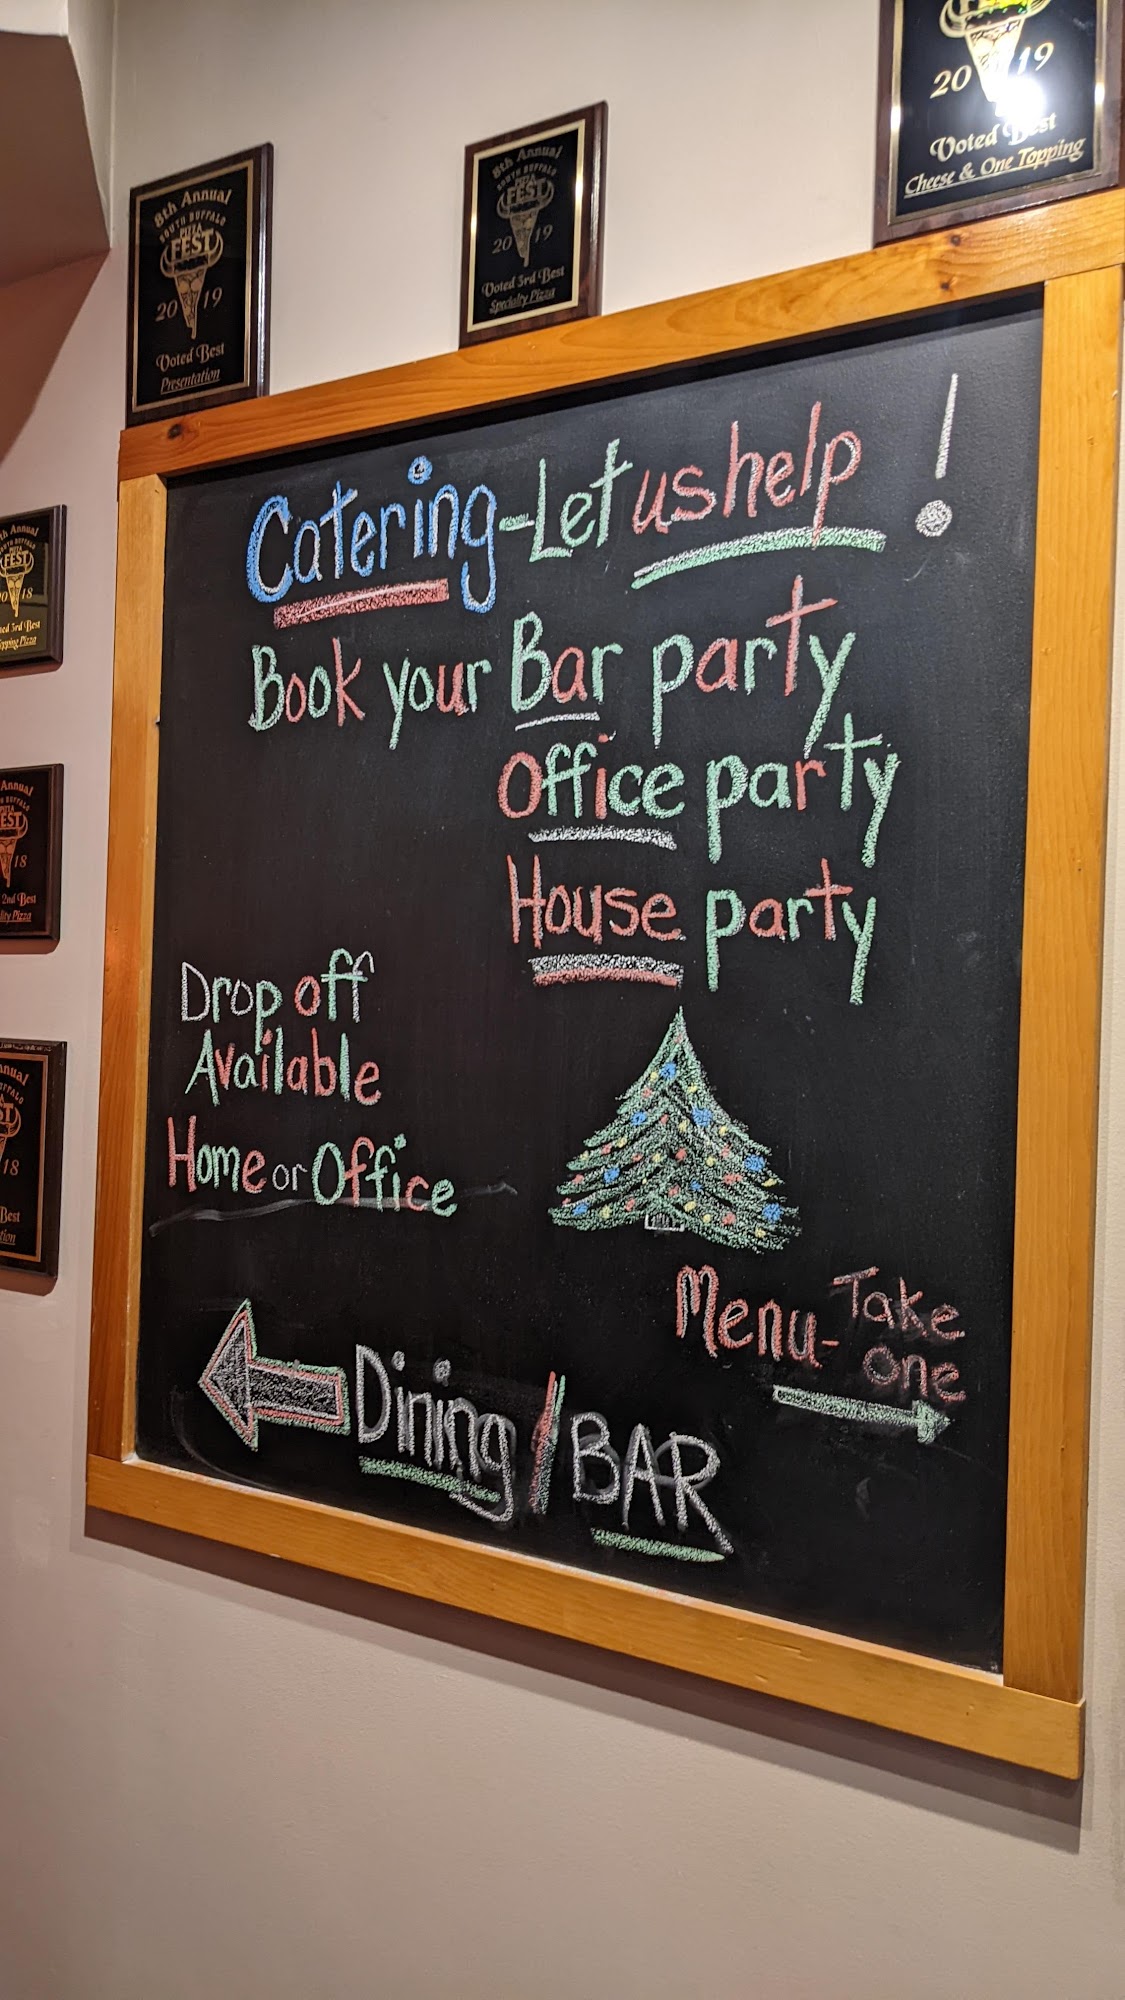 8th Annual
SOUTH BUFFALO
PIZZA
FEST
2019
Voted Best
Presentation
8th Annual
SOUTH BUFFALO
PIZZA
FEST
2019
Voted 3rd Best
Specialty Pizza
FEST
2019
Voted Best
Cheese & One Topping
Annual
FEST
18
3rd Best
Pizza
Annual
18
2nd Best
Pizza
18
Best
Catering - Let us help !
Book your Bar party
Office party
House party
Drop off
Available
Home or Office
Menu - Take
one
Dining / BAR